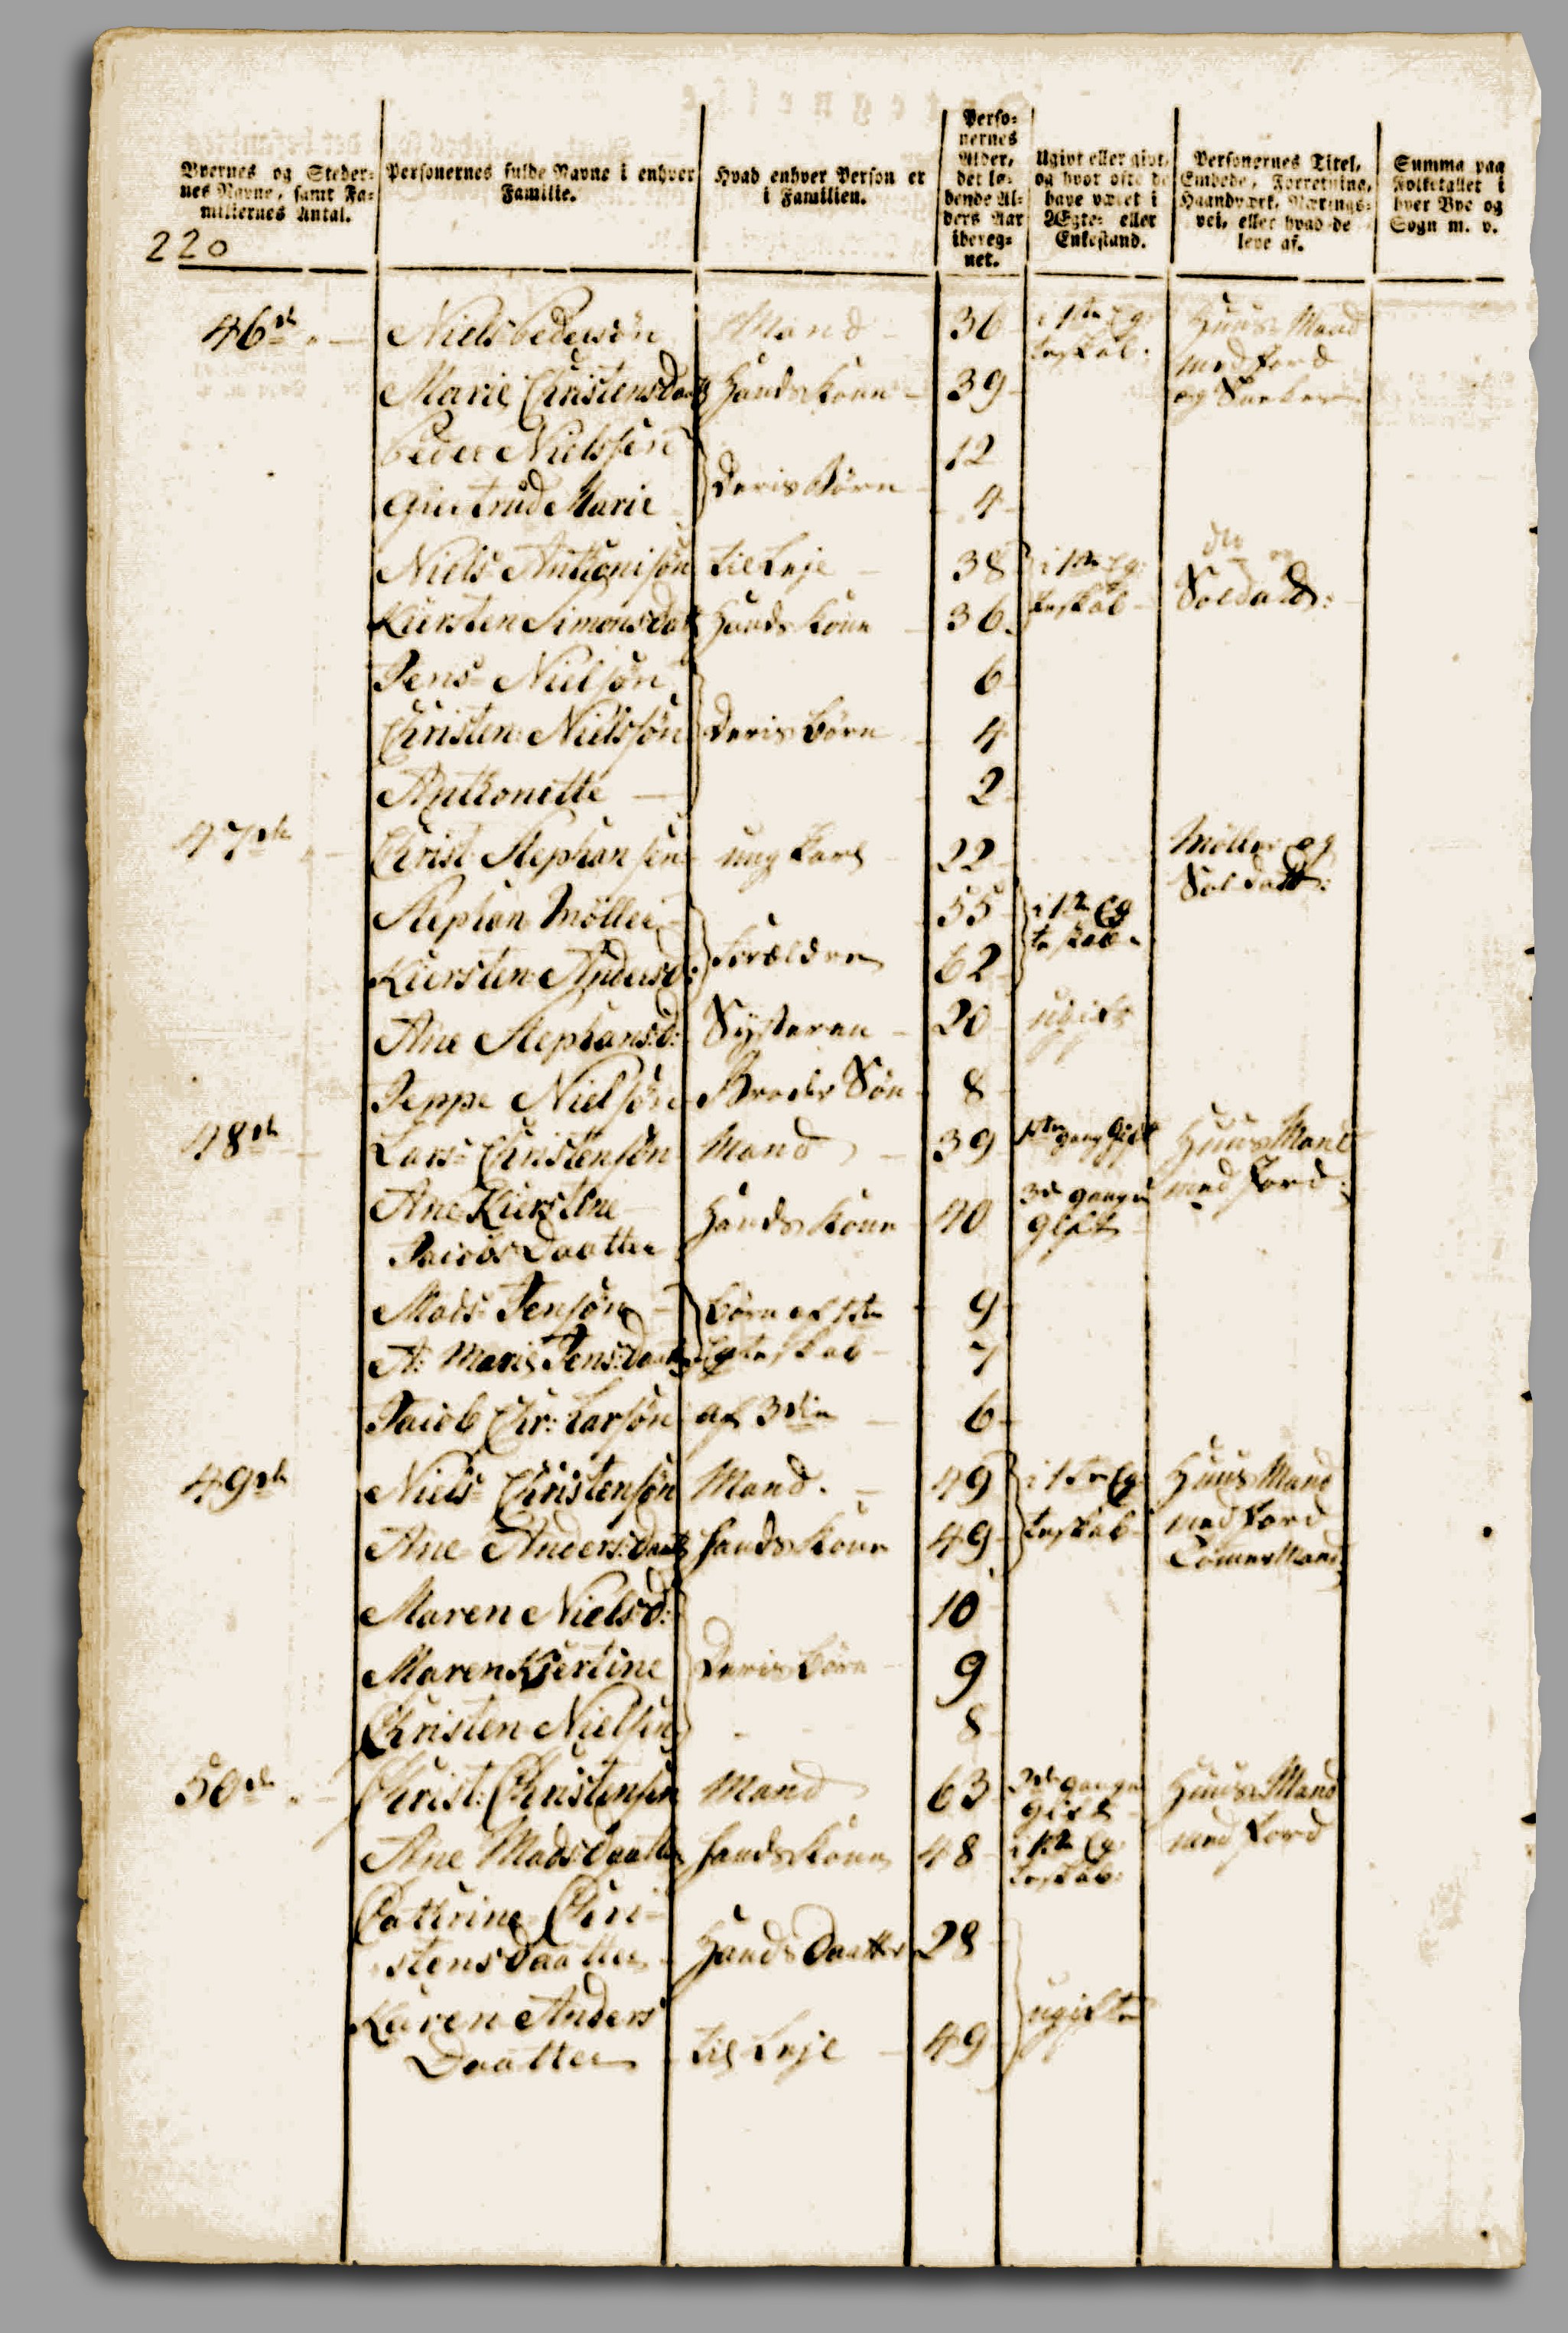 Byernes og Steder= nes Navne, samt Fa= miliernes Antal.
Personernes fulde Navne i enhver Familie.
Hvad enhver Person er i Familien.
Perso= nernes Alder, det lø= bende Al= ders Aar ibereg= net.
Ugivt eller givt, og hvor ofte de have været i Ægte= eller Enkestand.
Personernes Titel, Embede, Forretning, Haandværk, Nærings= vei, eller hvad de leve af.
Summa paa Folketallet i hver Bye og Sogn m. v.
220
46de Niels Pedersøn Mand 36 i 1te Eg: teskab: Huus Mand
Marie Christensdaatt Hands Kone 39 med Jord og
Peder Nielsøn 12
Giertrud Marie Deris Børn 4
Niels Anthonisøn til Leje 38 i 1te Eg: dto og
Kiersten Simonsdatt Hands Kone 36 teskab Soldat:
Jens Nielsøn 6
Christen Nielsøn Deris børn 4
Anthonette 2
47de Christ: Stephansen ung Karl 22 Møller og Soldatt:
Stephan Møller 55 i 1te Eg
Kiersten Andersd: Forældre 62 teskab
Ane Stephansd: Systeren 20 ugivt
Jeppe Nielsøn Broder Søn 8
48de Lars Christensøn Mand 39 1te gang Gift Huus Mand
Ane Kierstine Hands Kone 40 3de gange gift med Jord:
Jacobs Daatter
Mads Jensøn børn af 1ste 9
A: Marie Jens:daatt Egteskab 7
Jacob Chr: Larsøn af 3die 6
49de Niels Christensøn Mand. 49 i 1te Eg: Huus Mand
Ane Anders:daatt hands Kone 49 teskab med Jord
Tømmermand
Maren Nielsd: 10
Maren Kiertine Deris børn 9
Christen Nielsen 8
50de Christ: Christensen Mand 63 3de gange gift Huus Mand
Ane Madsdaatter hands Kone 48 i 1te Eg: teskab: med Jord
Cathrine Chri=
stensdaatter Hands Daatter 28
Karen Anders ugifte
Daatter til Leje 49